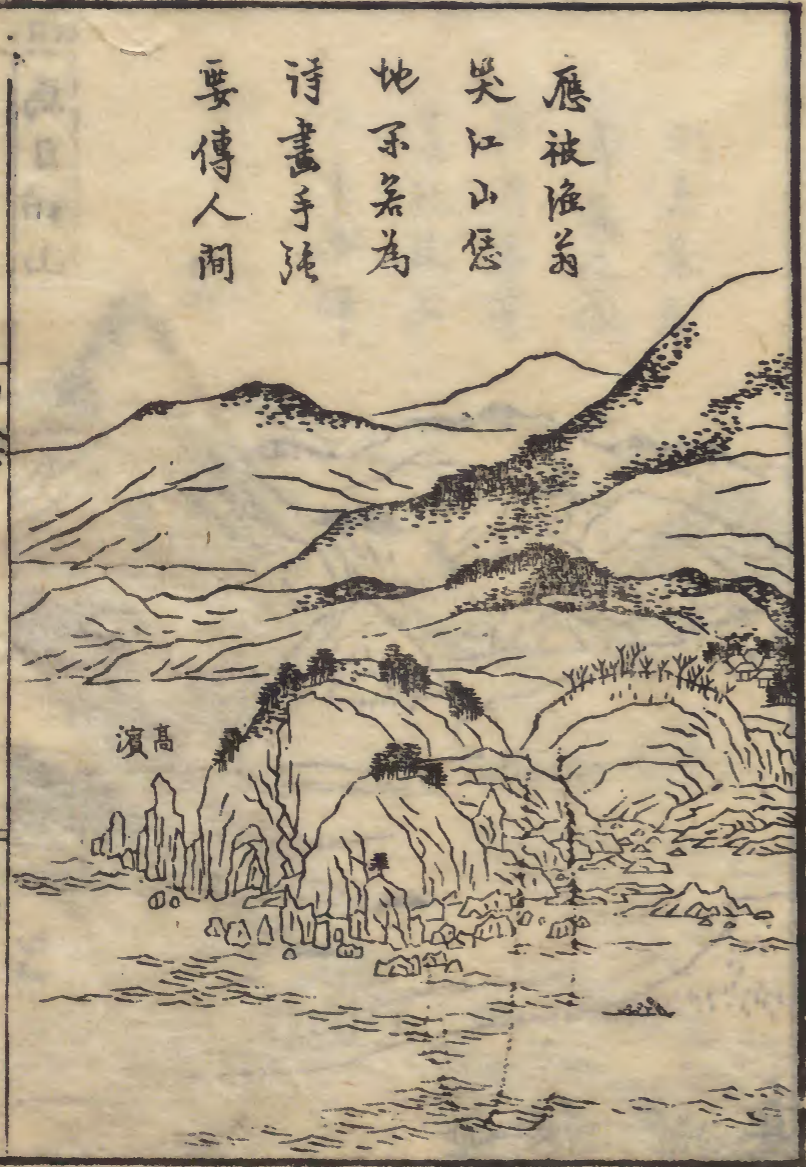 應被漁翁
笑江山恁
地閑若為
詩畫手強
要傳人間
高濱